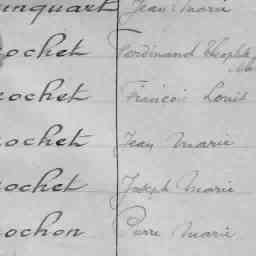 unquart Jean Marie
ochet Ferdinand Théophile
ochet François Louis
ochet Jean Marie
ochet Joseph Marie
ochon Pierre Marie